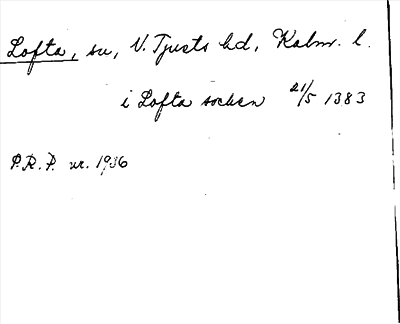 Lofta, sn, N. Tjusts hd, Kalm. l.
i Lofta socken 21/5 1383
P.R.P. nr. 1936